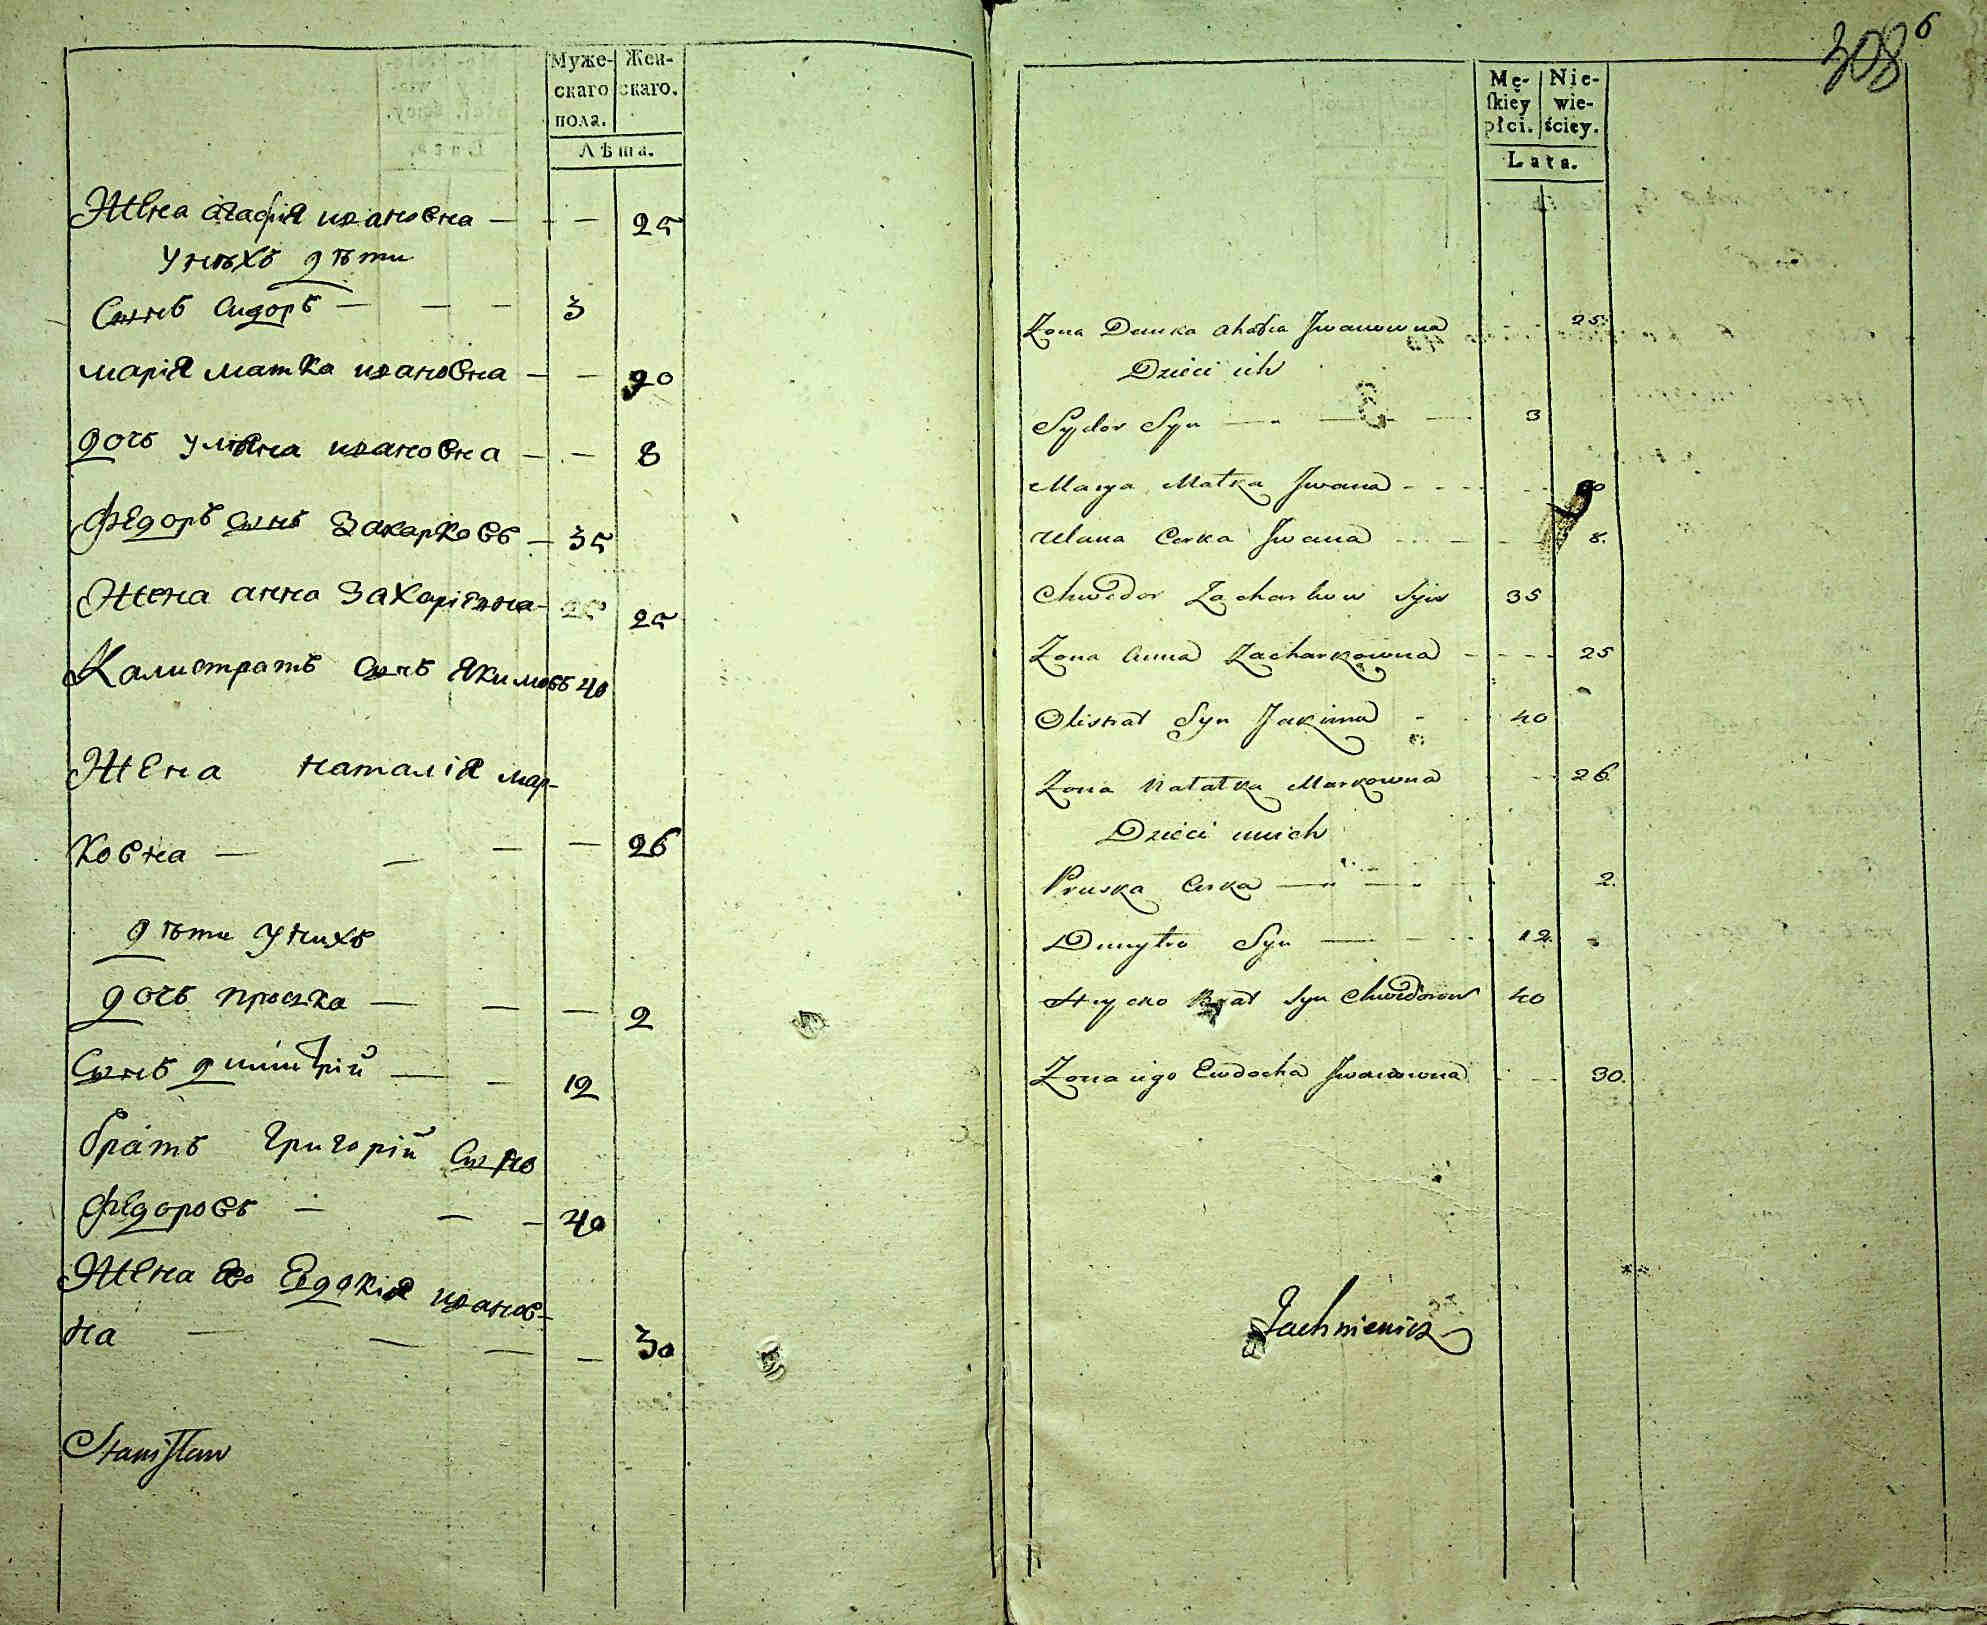 Муже- Жен-
скаго скаго.
пола.
Лѣта.
Жена агафія ивановна — — — 25
У нихъ дѣти
Сынъ Сидоръ — — — 3
марія матка ивановна — — 90
дочь уляна ивановна — — 8
Федоръ сынъ Захарковъ — 35
Жена анна Захаріевна 25 25
Калистратъ сынъ Якимовъ 40
Жена наталія мар-
ковна — — — — 26
дѣти у нихъ
дочь проська — — — 2
Сынъ димитрій — — 12
братъ Григорій сынъ
Федоровъ — — — 40
Жена его Евдокія иванов-
на — — — — 30
Stanisław
308 6
Mę- Nie-
skiey wie-
płci. ściey.
Lata.
Zona Demka Ahafia Jwanowna 25.
Dzieci ich
Sydor Syn — — — 3
Marya Matka Jwana - - - - 90
Ulana Corka Jwana - - - - 8.
Chwedor Zacharkow Syn 35
Zona Anna Zacharkowna - - - - 25
Olistrat Syn Jakima - 40
Zona Natalka Markowna - - 26.
Dzieci unich
Pruska Corka — — 2.
Dmytro Syn — - - 12.
Hrycko Brat Syn Chwedorow 40
Zona iego Ewdocha Jwanowna - - 30.
Jachniewicz